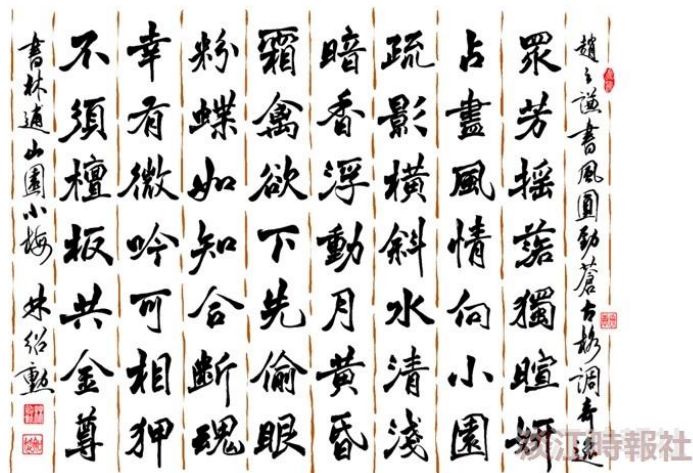 趙之謙書風圓勁蒼古格調奇逸
眾芳搖落獨暄妍
占盡風情向小園
疏影橫斜水清淺
暗香浮動月黃昏
霜禽欲下先偷眼
粉蝶如知合斷魂
幸有微吟可相狎
不須檀板共金尊
書林逋山園小梅 林紹勲
淡江時報社